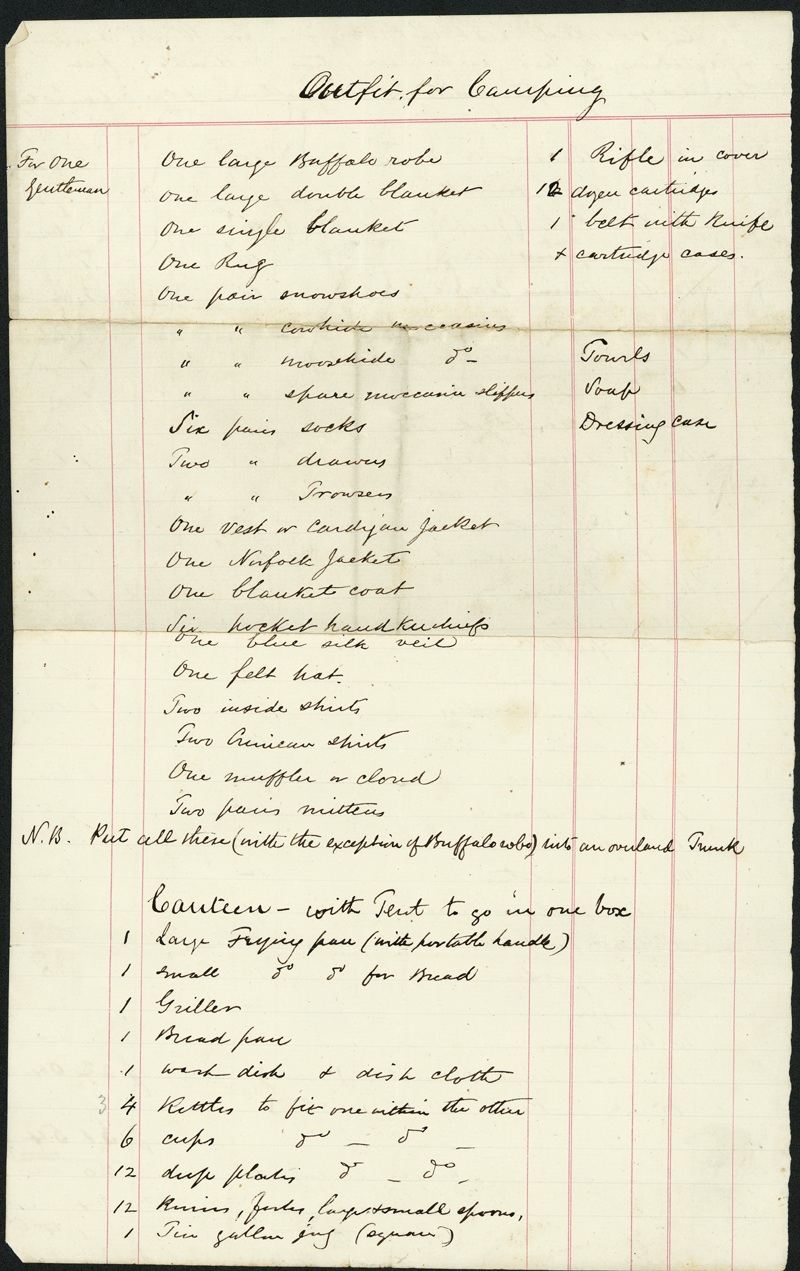 Outfit for Camping
For One
Gentleman
One large Buffalo robe
One large double blanket
One single blanket
One Rug
One pair snowshoes
" " cowhide moccasins
" " moosehide do -
" " spare moccasin slippers
Six pairs socks
Two " drawers
" " Trowsers
One vest or Cardigan Jacket
One Norfolk Jacket
One blanket coat
Six pocket handkerchiefs
One blue silk veil
One felt hat.
Two inside shirts
Two Crimean shirts
One muffler or cloud
Two pairs mittens
1 Rifle in cover
12 dozen cartridges
1 belt with Knife
& cartridge cases.
Towels
Soap
Dressing case
N.B. Put all these (with the exception of Buffalo robe) into an overland Trunk
Canteen - with Tent to go in one box
1 Large Frying pan (with portable handle)
1 small do do for Bread
1 Griller
1 Bread pan
1 wash dish & dish cloth
3 4 Kettles to fit one within the other
6 cups do - do -
12 deep plates do - do -
12 Knives, forks, large & small spoons,
1 Tin gallon jug (square)